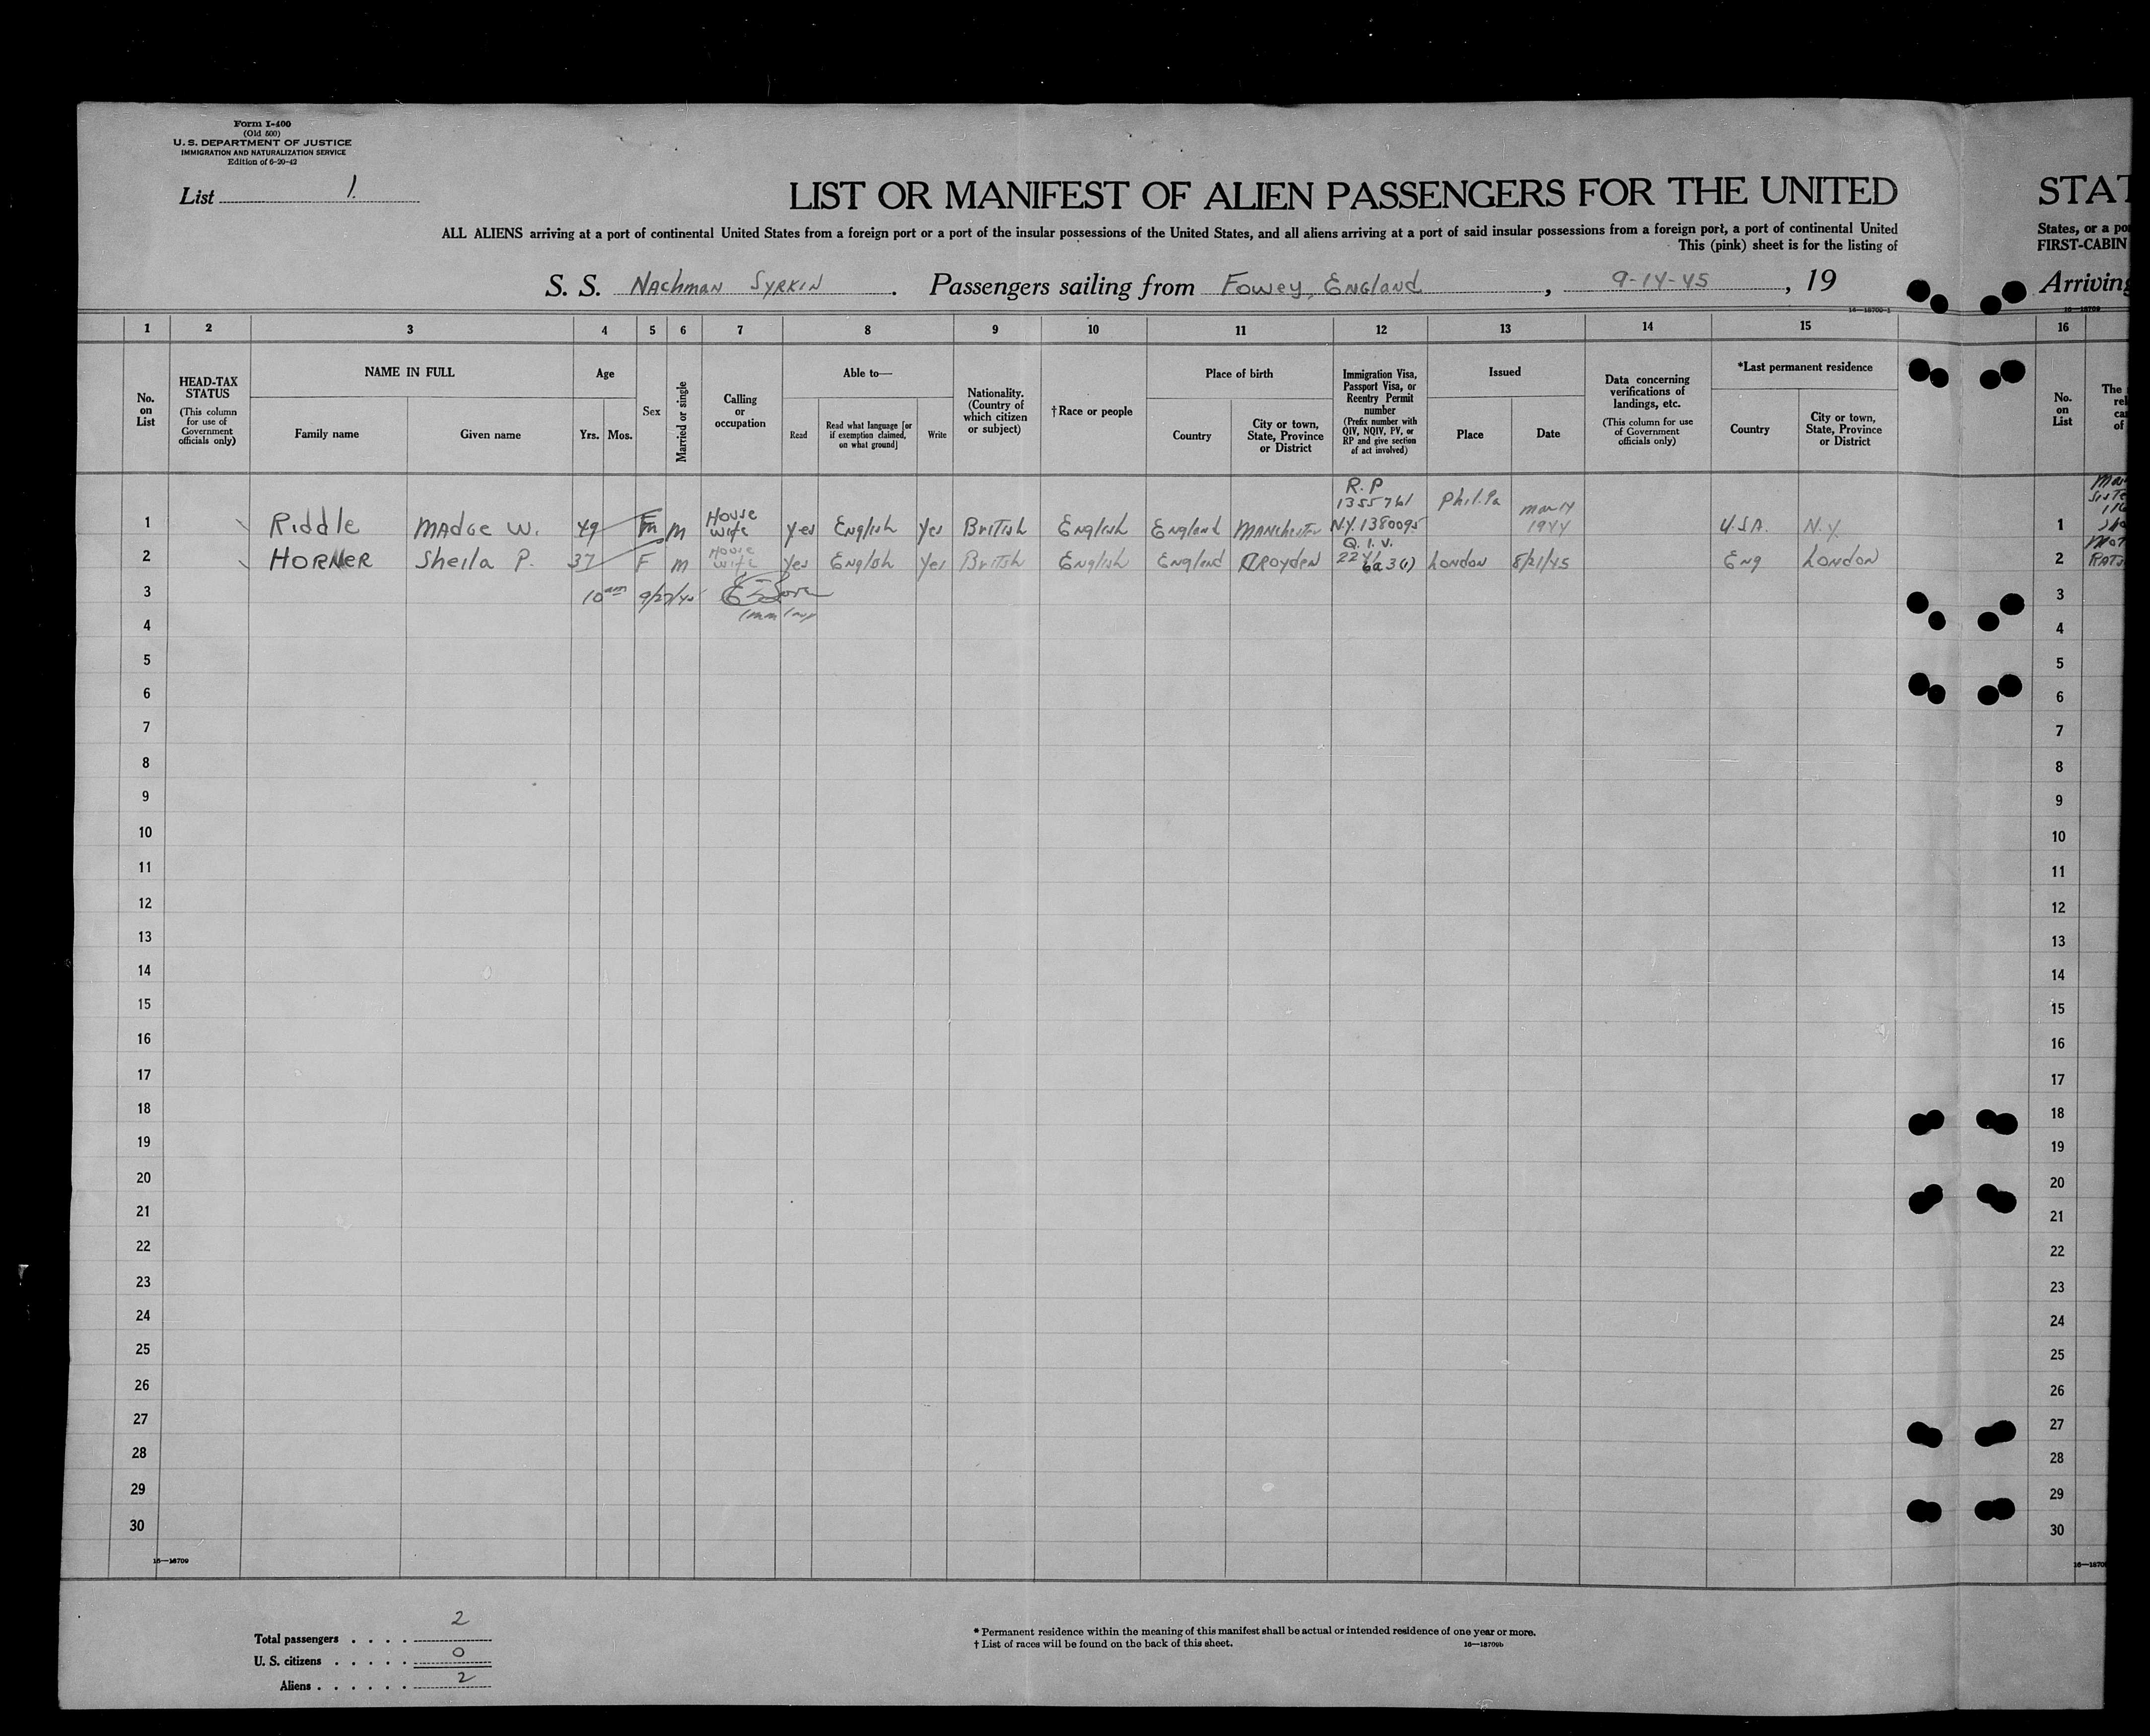 Form I-400
(Old 500)
U. S. DEPARTMENT OF JUSTICE
IMMIGRATION AND NATURALIZATION SERVICE
Edition of 6-20-42
List 1.
LIST OR MANIFEST OF ALIEN PASSENGERS FOR THE UNITED STAT
ALL ALIENS arriving at a port of continental United States from a foreign port or a port of the insular possessions of the United States, and all aliens arriving at a port of said insular possessions from a foreign port, a port of continental United States, or a po
This (pink) sheet is for the listing of FIRST-CABIN
S. S. Nachman Syrkin. Passengers sailing from Fowey, England, 9-14-45, 19 Arriving
16—18709-1 16—18709
1 2 3 4 5 6 7 8 9 10 11 12 13 14 15 16
No. on List
HEAD-TAX STATUS
(This column for use of Government officials only)
NAME IN FULL
Family name Given name
Age
Yrs. Mos.
Sex
Married or single
Calling or occupation
Able to—
Read Read what language [or if exemption claimed, on what ground] Write
Nationality. (Country of which citizen or subject)
†Race or people
Place of birth
Country City or town, State, Province or District
Immigration Visa, Passport Visa, or Reentry Permit number
(Prefix number with QIV, NQIV, PV, or RP and give section of act involved)
Issued
Place Date
Data concerning verifications of landings, etc.
(This column for use of Government officials only)
*Last permanent residence
Country City or town, State, Province or District
No. on List
The
rel
ca
of
R.P
1355761
1 Riddle Madge W. 49 F m House wife Yes English Yes British English England Manchester N.Y. 1380095 Phil. Pa Mar 14 1944 U.S.A. N.Y. 1
Q.I.V.
2 HORNER Sheila P. 37 F m House wife Yes English Yes British English England Croyden 224 6a3(1) London 8/21/45 Eng London 2
3 10 am 9/27/45 3
4 4
5 5
6 6
7 7
8 8
9 9
10 10
11 11
12 12
13 13
14 14
15 15
16 16
17 17
18 18
19 19
20 20
21 21
22 22
23 23
24 24
25 25
26 26
27 27
28 28
29 29
30 30
16—18709 16—1870
Total passengers . . . . 2
U. S. citizens . . . . . 0
Aliens . . . . . . 2
* Permanent residence within the meaning of this manifest shall be actual or intended residence of one year or more.
† List of races will be found on the back of this sheet. 16—18709b